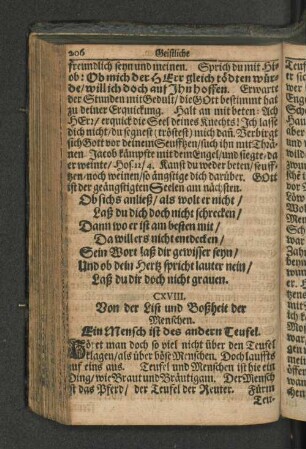 206 Geistliche
freundlich seyn und meinen. Sprich du mit Hi-
ob: Ob mich der HErr gleich tödten wür-
de/ will ich doch auf Ihn hoffen. Erwarte
der Stunden mit Gedult/ die GOtt bestimmt hat
zu deiner Erquickung. Halt an mit beten: Ach
HErr/ erquick die Seel deines Knechts! Ich lasse
dich nicht/ du segnest (tröstest) mich dañ. Verbirgt
sich Gott vor deinem Seufftzen/ such ihn mit Thrä-
nen. Jacob kämpfte mit dem Engel/ und siegte: da
er weinte/ Hos. 12/ 4. Kanst du weder beten/ seuff-
tzen/ noch weinen/ so ängstige dich darüber. GOtt
ist der geängstigten Seelen am nächsten.
Ob sichs anließ/ als wolt er nicht/
Laß du dich doch nicht schrecken/
Dann wo er ist am besten mit/
Da will ers nicht entdecken/
Sein Wort laß dir gewisser seyn/
Und ob dein Hertz spricht lauter nein/
Laß du dir doch nicht grauen.
CXVIII.
Von der List und Boßheit der
Menschen.
Ein Mensch ist des andern Teufel.
Hört man doch so viel nicht über den Teufel
klagen/ als über böse Menschen. Doch laufts
auf eins aus. Teufel und Menschen ist hie ein
Ding/ wie Braut und Bräutigam. Der Mensch
ist das Pferd/ der Teufel der Reuter. Für'm
Teu-